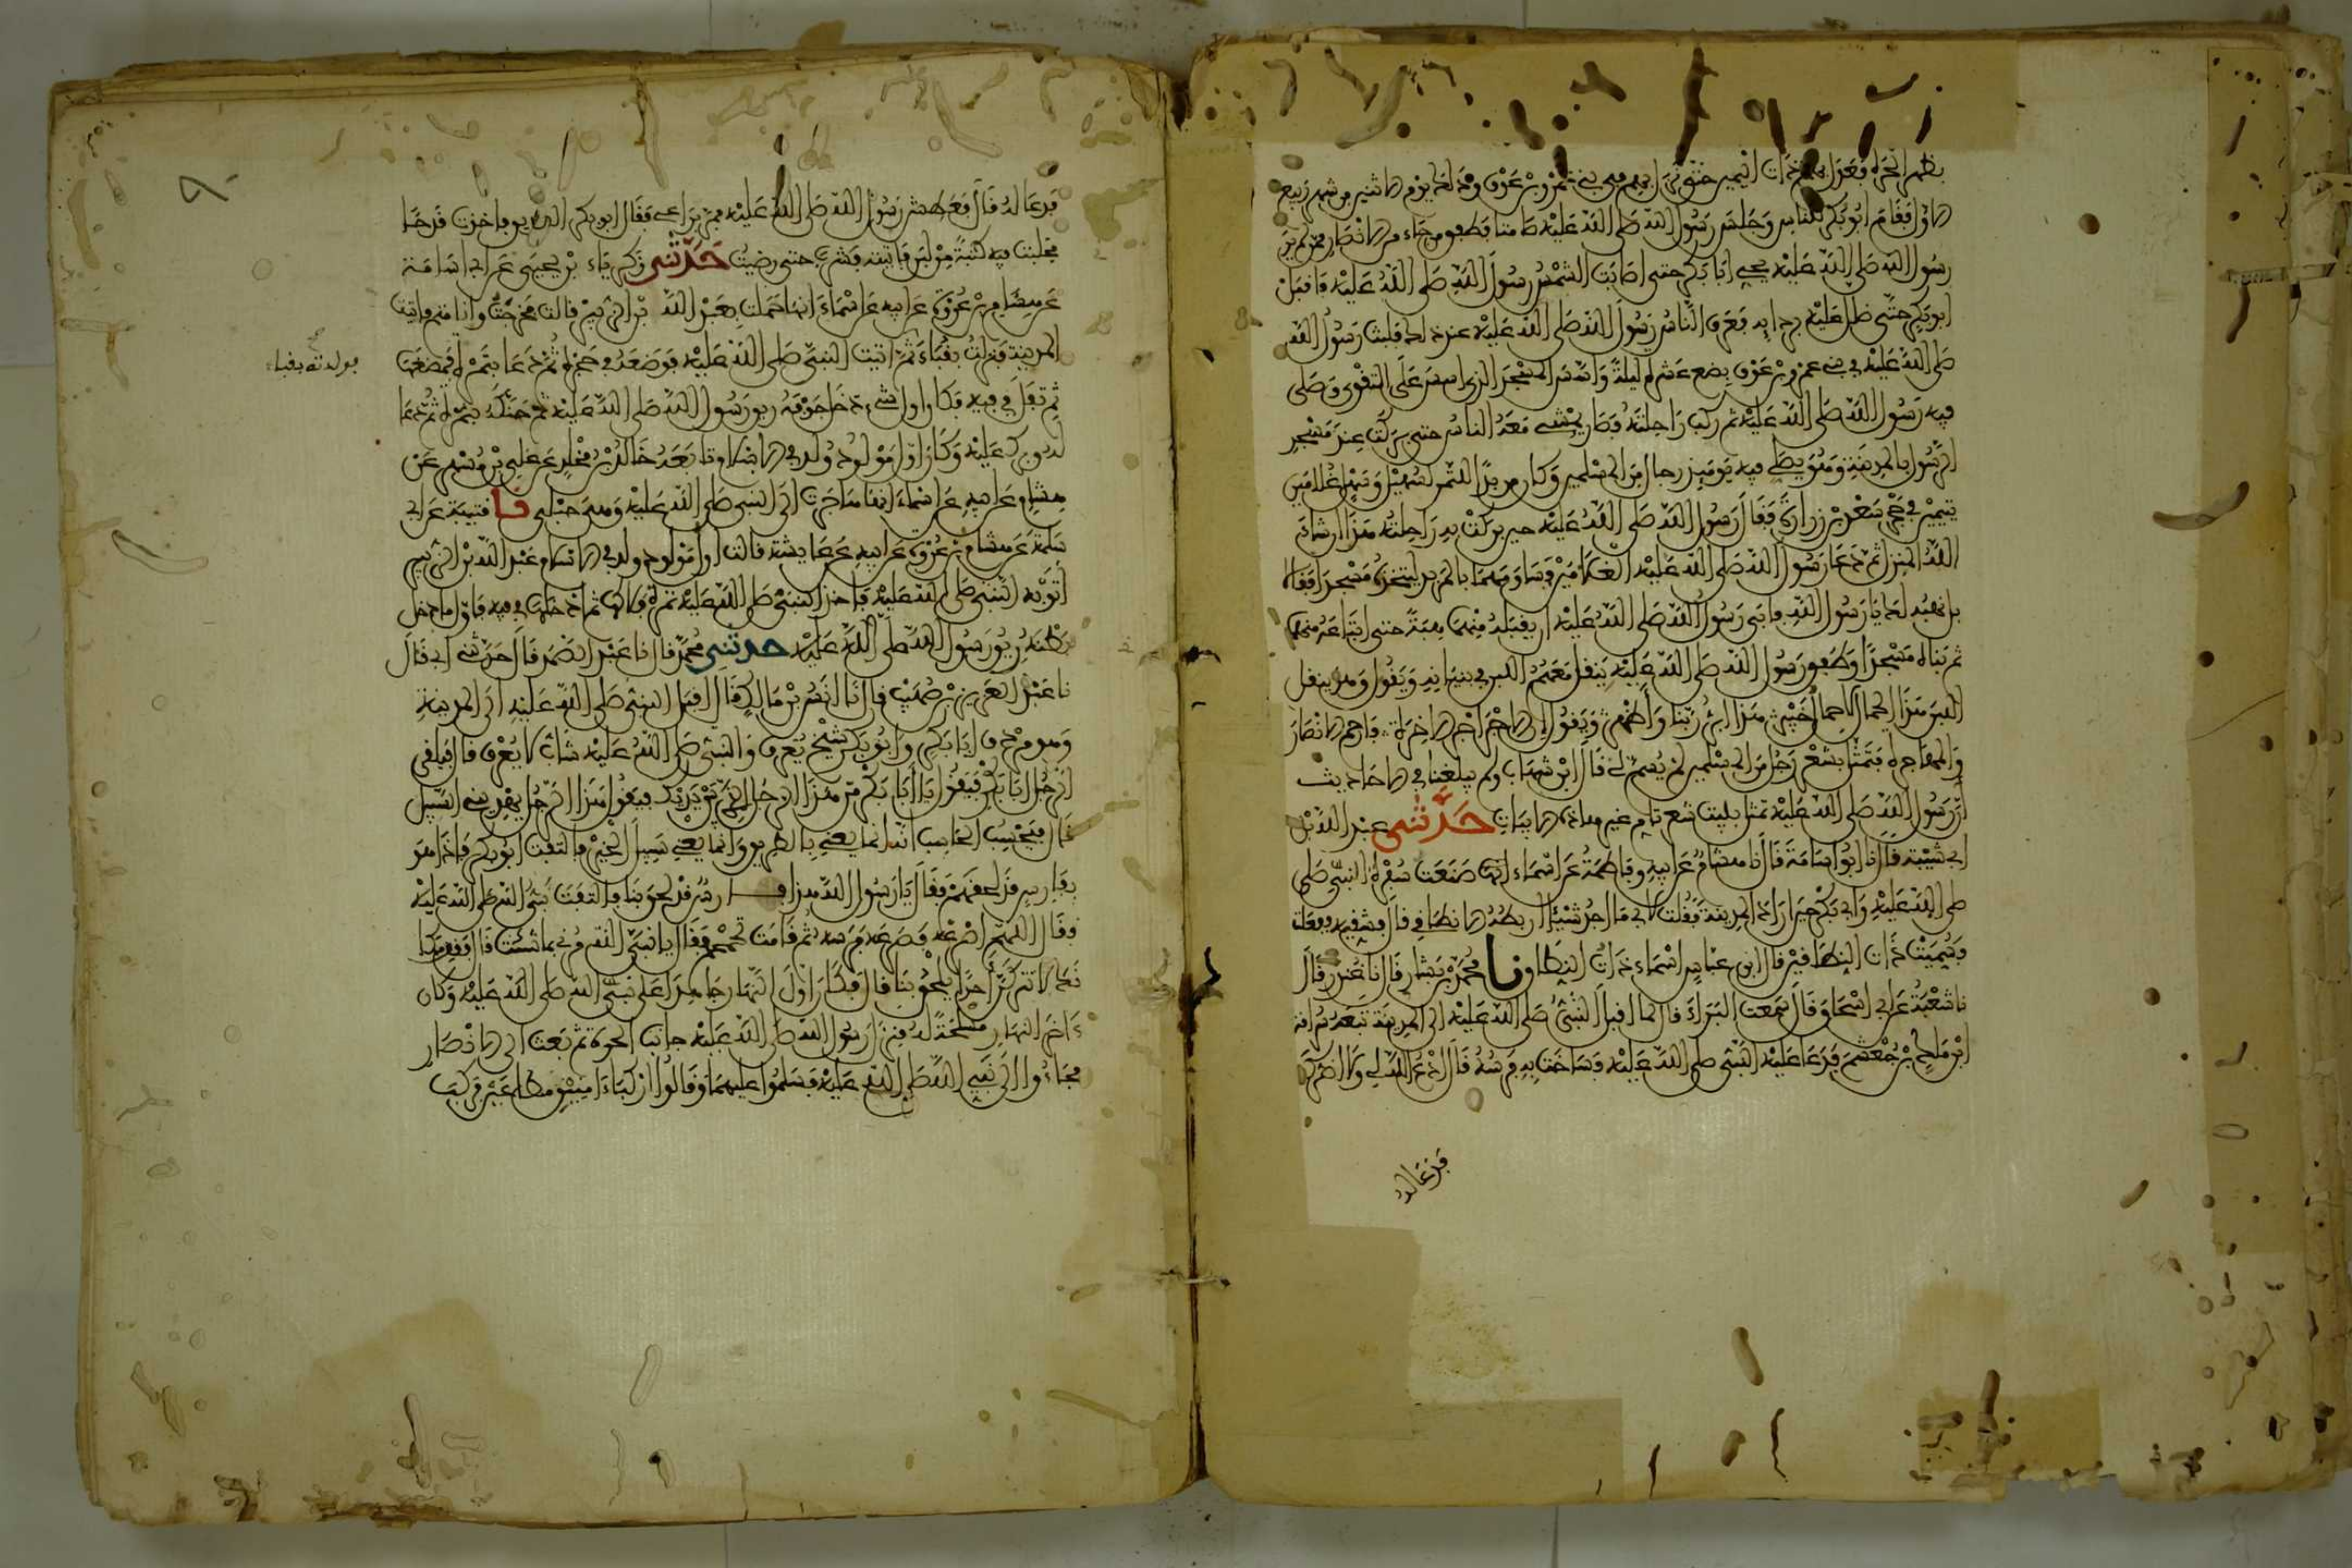 بظهر الحرة فعدل بهم ذات اليمين حتى نزل بهم في بني عمرو بن عوف وذلك يوم الاثنين من شهر ربيع
الاول فقام ابو بكر للناس وجلس رسول الله صلى الله عليه صامتا فطفق من جاء من الانصار ممن لم ير
رسول الله صلى الله عليه يحيي ابا بكر حتى اصابت الشمس رسول الله صلى الله عليه فاقبل
ابو بكر حتى ظلل عليه بردايه فعرف الناس رسول الله صلى الله عليه عند ذلك فلبث رسول الله
صلى الله عليه في بني عمرو بن عوف بضع عشرة ليلة واسس المسجد الذي اسس على التقوى وصلى
فيه رسول الله صلى الله عليه ثم ركب راحلته فصار يمشي معه الناس حتى بركت عند مسجد
الرسول بالمدينة وهو يصلي فيه يوميذ رجال من المسلمين وكان مربدا للتمر لسهيل وسهل غلامين
يتيمين في حجر سعد بن زرارة فقال رسول الله صلى الله عليه حين بركت به راحلته هذا ان شاء
الله المنزل ثم دعا رسول الله صلى الله عليه الغلامين فساومهما بالمربد ليتخذه مسجدا فقالا
بل نهبه لك يا رسول الله فابى رسول الله صلى الله عليه ان يقبله منهما هبة حتى ابتاعه منهما
ثم بناه مسجدا وطفق رسول الله صلى الله عليه ينقل معهم اللبن في بنيانه ويقول وهو ينقل
اللبن هذا الحمال لا حمال خيبر هذا ابر ربنا واطهر ويقول ان الاجر اجر الاخرة فارحم الانصار
والمهاجره فتمثل بشعر رجل من المسلمين لم يسم لي قال ابن شهاب ولم يبلغنا في الاحاديث
ان رسول الله صلى الله عليه تمثل ببيت شعر تام غير هذه الابيات حدثني عبد الله بن
ابي شيبة قال نا ابو اسامة قال نا هشام عن ابيه وفاطمة عن اسماء انها صنعت سفرة النبي صلى
صلى الله عليه وابي بكر حين ارادا المدينة فقلت لابي ما اجد شيئا اربطه الا نطاقي قال فشقيه ففعلت
فسميت ذات النطاقين قال ابن عباس اسماء ذات النطاق نا محمد بن بشار قال نا غندر قال
نا شعبة عن ابي اسحاق قال سمعت البراء قال لما اقبل النبي صلى الله عليه الى المدينة تبعه سراقة
ابن مالك بن جعشم فدعا عليه النبي صلى الله عليه فساخت به فرسه قال ادع الله لي ولا اضرك
فدعا له
فدعا له قال فعطش رسول الله صلى الله عليه فمر براعي فقال ابو بكر الصديق فاخذت قدحا
فحلبت فيه كثبة من لبن فاتيته فشرب حتى رضيت حدثني زكرياء بن يحيى عن ابي اسامة
عن هشام بن عروة عن ابيه عن اسماء انها حملت بعبد الله بن الزبير قالت فخرجت وانا متم فاتيت
المدينة فنزلت بقباء ثم اتيت النبي صلى الله عليه فوضعه في حجره ثم دعا بتمرة فمضغها
فولدته بقباء
ثم تفل في فيه فكان اول شيء دخل جوفه ريق رسول الله صلى الله عليه ثم حنكه بتمرة ثم دعا
له وبرك عليه وكان اول مولود ولد في الاسلام وتابعه خالد بن مخلد عن علي بن مسهر عن
هشام عن ابيه عن اسماء انها هاجرت الى النبي صلى الله عليه وهي حبلى نا قتيبة عن ابي
سلمة عن هشام بن عروة عن ابيه عن عايشة قالت اول مولود ولد في الاسلام عبد الله بن الزبير
اتوا به النبي صلى الله عليه فاخذ النبي صلى الله عليه تمرة فلاكها ثم ادخلها في فيه فاول ما دخل
بطنه ريق رسول الله صلى الله عليه حدثني محمد قال نا عبد الصمد قال حدثني ابي قال
نا عبد العزيز بن صهيب قال نا انس بن مالك قال اقبل النبي صلى الله عليه الى المدينة
وهو مردف ابا بكر وابو بكر شيخ يعرف والنبي صلى الله عليه شاب لا يعرف قال فيلقى
الرجل ابا بكر فيقول يا ابا بكر من هذا الرجل الذي بين يديك فيقول هذا الرجل يهديني السبيل
قال فيحسب الحاسب انه انما يعني بالطريق وانما يعني سبيل الخير فالتفت ابو بكر فاذا هو
بفارس قد لحقهم فقال يا رسول الله هذا فارس قد لحق بنا فالتفت نبي الله صلى الله عليه
فقال اللهم اصرعه فصرعه فرسه ثم قامت تحمحم فقال يا نبي الله مرني بما شئت قال فقف مكانك
لا تتركن احدا يلحق بنا قال فكان اول النهار جاهدا على نبي الله صلى الله عليه وكان
ءاخر النهار مسلحة له فنزل رسول الله صلى الله عليه جانب الحرة ثم بعث الى الانصار
فجاءوا الى نبي الله صلى الله عليه فسلموا عليهما وقالوا اركبا ءامنين مطاعين فركب